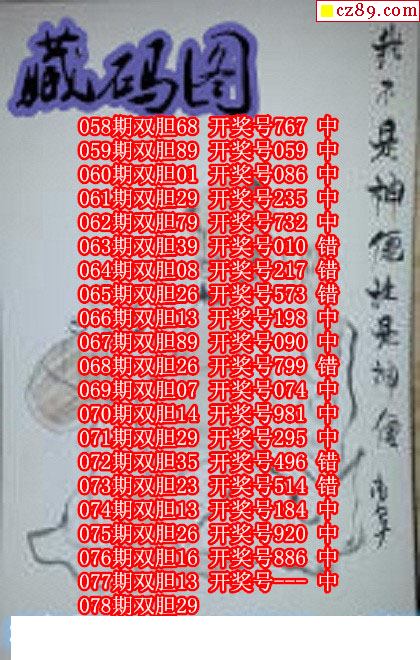 cz89.com
藏码图
058期双胆68 开奖号767 中
059期双胆89 开奖号059 中
060期双胆01 开奖号086 中
061期双胆29 开奖号235 中
062期双胆79 开奖号732 中
063期双胆39 开奖号010 错
064期双胆08 开奖号217 错
065期双胆26 开奖号573 错
066期双胆13 开奖号198 中
067期双胆89 开奖号090 中
068期双胆26 开奖号799 错
069期双胆07 开奖号074 中
070期双胆14 开奖号981 中
071期双胆29 开奖号295 中
072期双胆35 开奖号496 错
073期双胆23 开奖号514 错
074期双胆13 开奖号184 中
075期双胆26 开奖号920 中
076期双胆16 开奖号886 中
077期双胆13 开奖号--- 中
078期双胆29
我不是神仙就是神仙